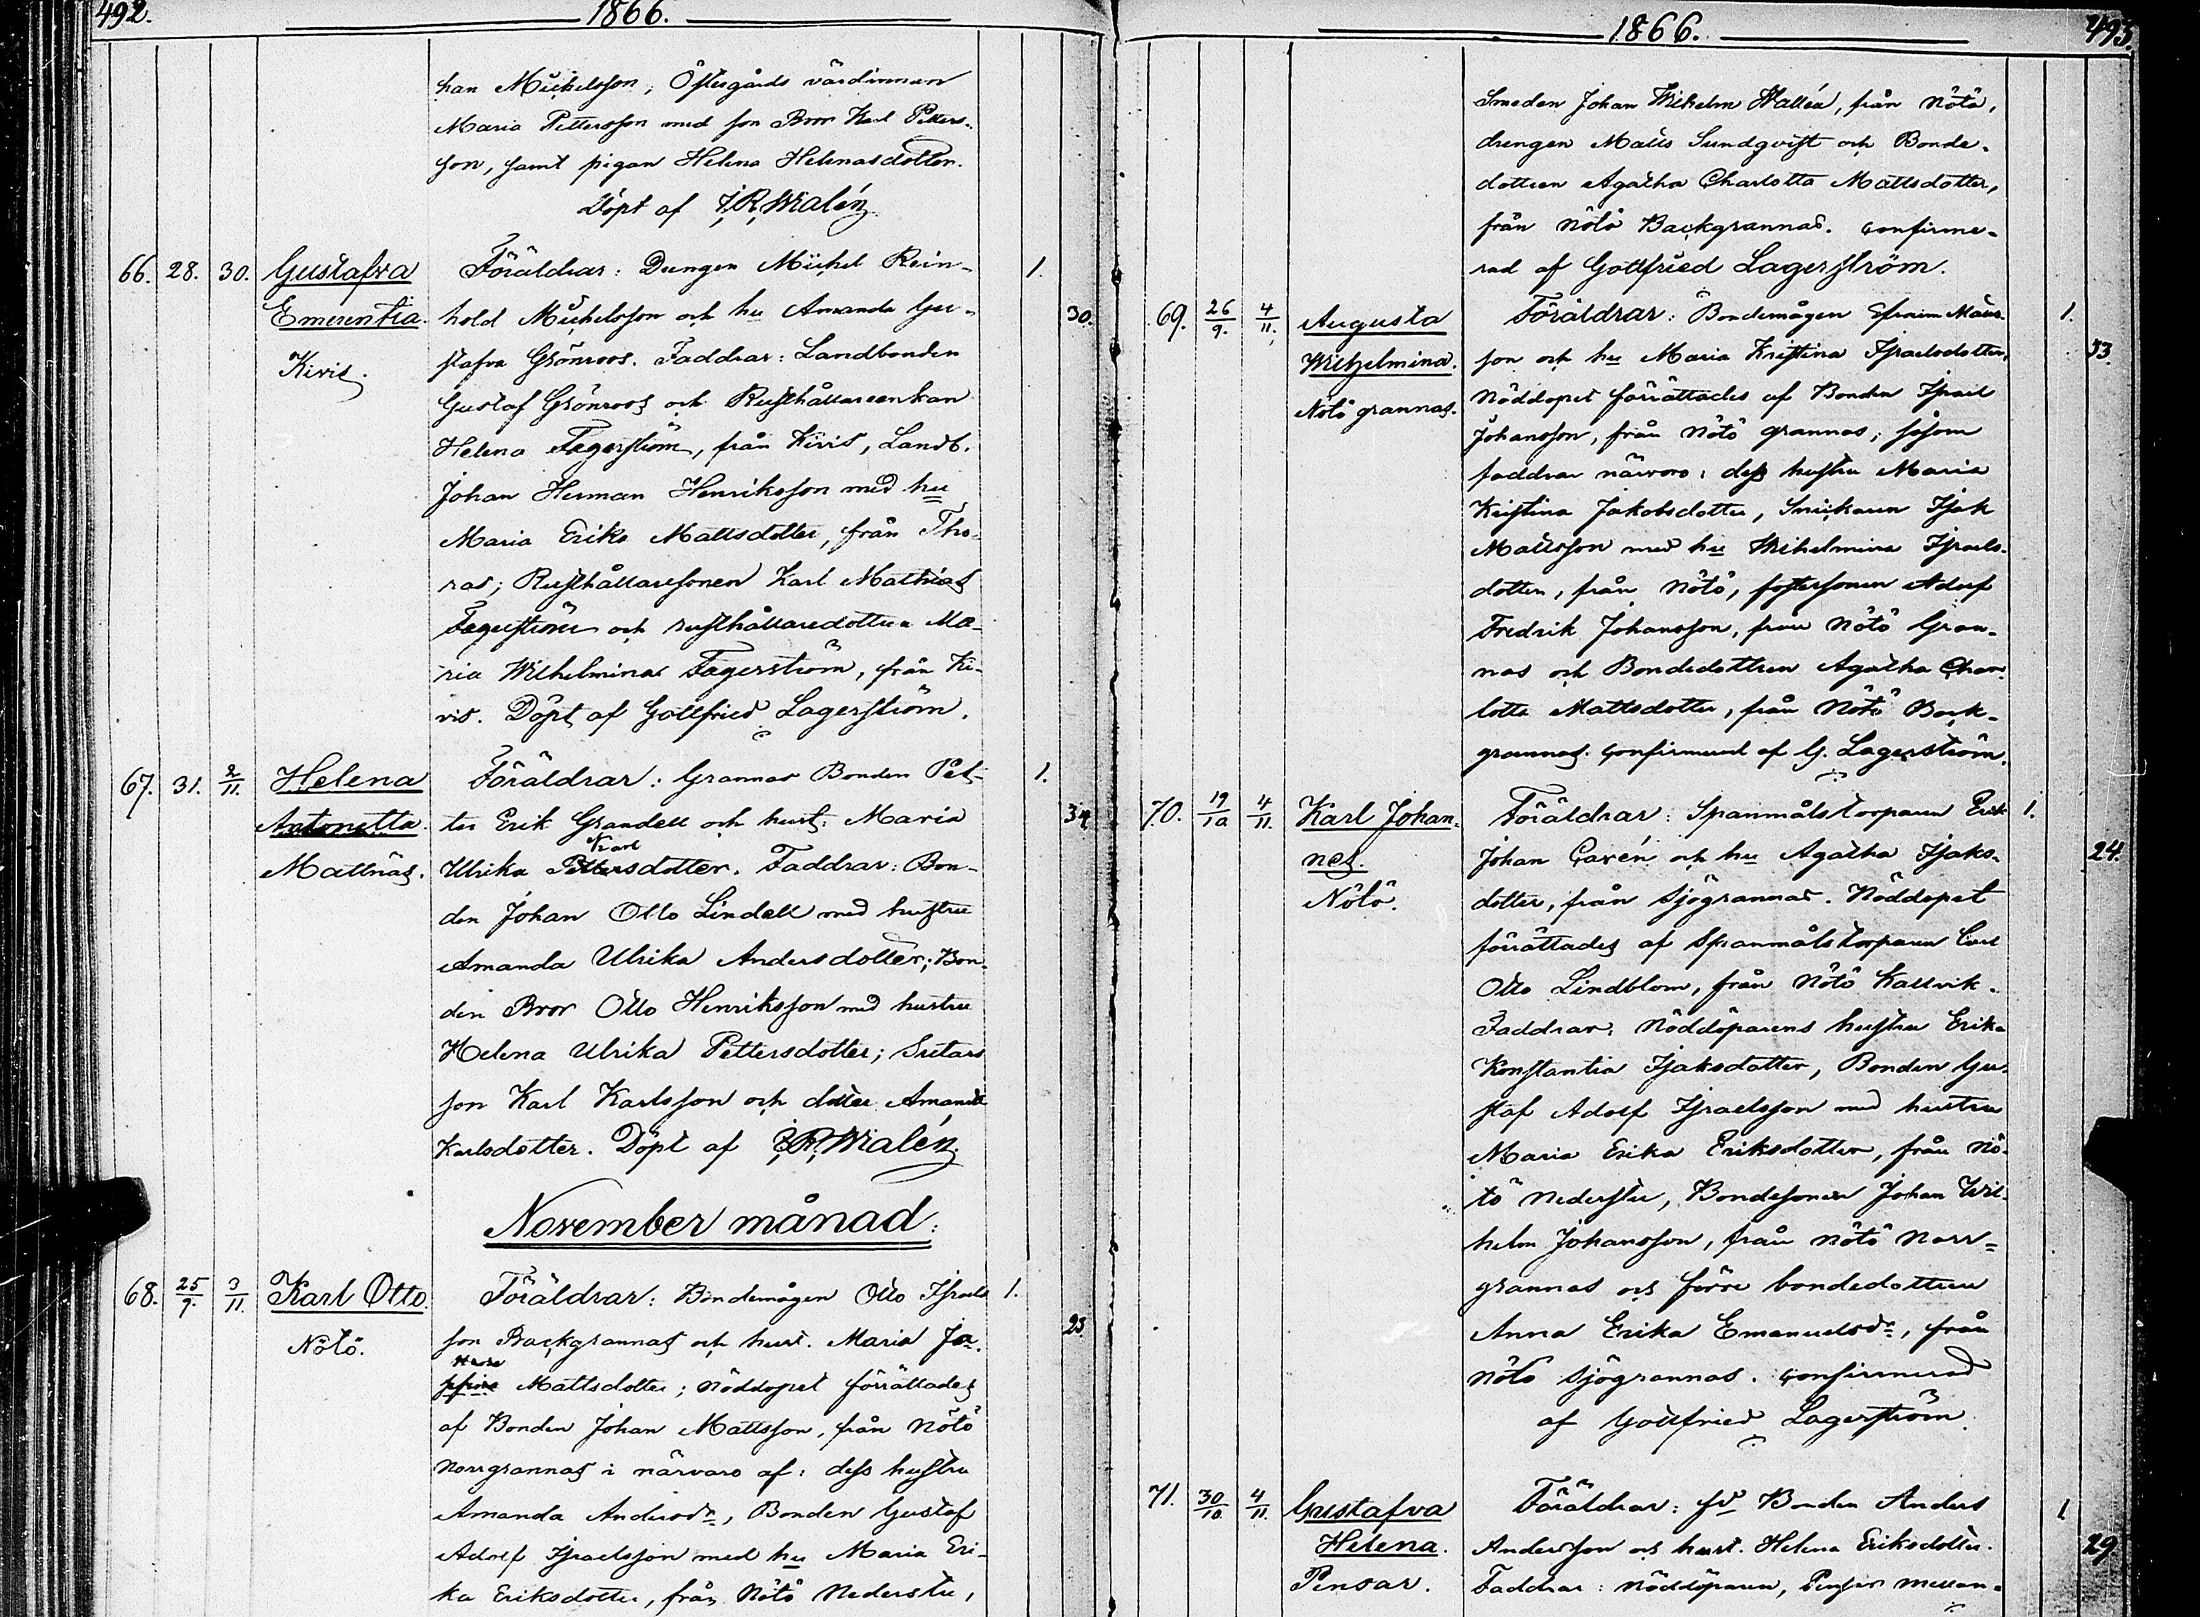 492.
1866.
han Michelsson, Östergårds värdinnan
Maria Pettersson med son Bror Karl Petters-
son, samt pigan Helena Helenasdotter.
Döpt af J. R. Wialén
66. 28. 30. Gustafva Föräldrar: Drengen Michel Rein- 1.
Emerentia. hold Michelsson och hu Amanda Gu- 30.
Kivis. stafva Grönroos. Faddrar: Landbonden
Gustaf Grönroos och Rusthållareenkan
Helena Fagerström, från Kivis, Landb.
Johan Herman Henriksson med hu
Maria Erika Mattsdotter, från Tho-
ras; Rusthållaresonen Karl Mathias
Fagerström och rusthållaredottren Ma-
ria Wilhelmina Fagerström, från Ki-
vis. Döpt af Gottfried Lagerström.
67. 31. 2/11. Helena Föräldrar: Grannas Bonden Pet- 1.
Antonetta. ter Erik Grandell och hust: Maria 34
Karl
Mattnäs. Ulrika Pettersdotter. Faddrar: Bon-
den Johan Otto Lindell med hustru
Amanda Ulrika Andersdotter; Bon-
den Bror Otto Henriksson med hustru
Helena Ulrika Pettersdotter;
son Karl Karlsson och dotter Amanda
Karlsdotter. Döpt af J. R. Wialén.
November månad.
68. 25/9. 3/11. Karl Otto. Föräldrar: Bondemågen Otto Israels 1.
Nötö. son Backgrannas och hust. Maria Jo- 23.
Mattsdotter; nöddopet förrättades
af Bonden Johan Mattsson, från Nötö
Norrgrannas i närvaro af: dess hustru
Amanda Andersdr, Bonden Gustaf
Adolf Israelsson med hu Maria Eri-
ka Eriksdotter, från Nötö Nederstu,
1866.
493.
Smeden Johan Wilhelm Wallén, från Nötö,
drengen Matts Sundqvist och Bonde-
dottren Agatha Charlotta Mattsdotter,
från Nötö Backgrannas. Confirme-
rad af Gottfried Lagerström.
69. 26/9. 4/11. Augusta Föräldrar: Bondemågen Efraim Måns- 1.
Wilhelmina. son och hu Maria Kristina Israelsdotter, 33.
Nötö grannas. Nöddopet förrättades af Bonden Israel
Johansson, från Nötö grannas; såsom
faddrar närvoro: dess hustru Maria
Kristina Jakobsdotter, Snickaren Isak
Mattsson med hu Wilhelmina Israels-
dotter, från Nötö, fostersonen Adolf
Fredrik Johansson, från Nötö Gran-
nas och Bondedottren Agatha Char-
lotta Mattsdotter, från Nötö Back-
grannas. Confirmerad af G. Lagerström.
70. 19/10 4/11. Karl Johan- Föräldrar: Spanmålstorparen Erik 1.
nes. Johan Carén och hu Agatha Isaks- 24.
Nötö. dotter, från Sjögrannas. Nöddopet
förrättades af Spanmålstorparen Carl
Otto Lindblom, från Nötö Kallvik.
Faddrar: Nöddöparens hustru Erika
Konstantia Isaksdotter, Bonden Gu-
staf Adolf Israelsson med hustru
Maria Erika Eriksdotter, från Nö-
tö Nederstu, Bondesonen Johan Wil-
helm Johansson, från Nötö Norr-
grannas och förre bondedottren
Anna Erika Emanuelsdr, från
Nötö Sjögrannas. Confirmerad
af Gottfried Lagerström.
71. 30/10 4/11. Gustafva Föräldrar: fd Bonden Anders 1
Helena. Andersson och hust. Helena Eriksdotter. 29.
Pensar. Faddrar: Nöddöparen, Pensar mellan-